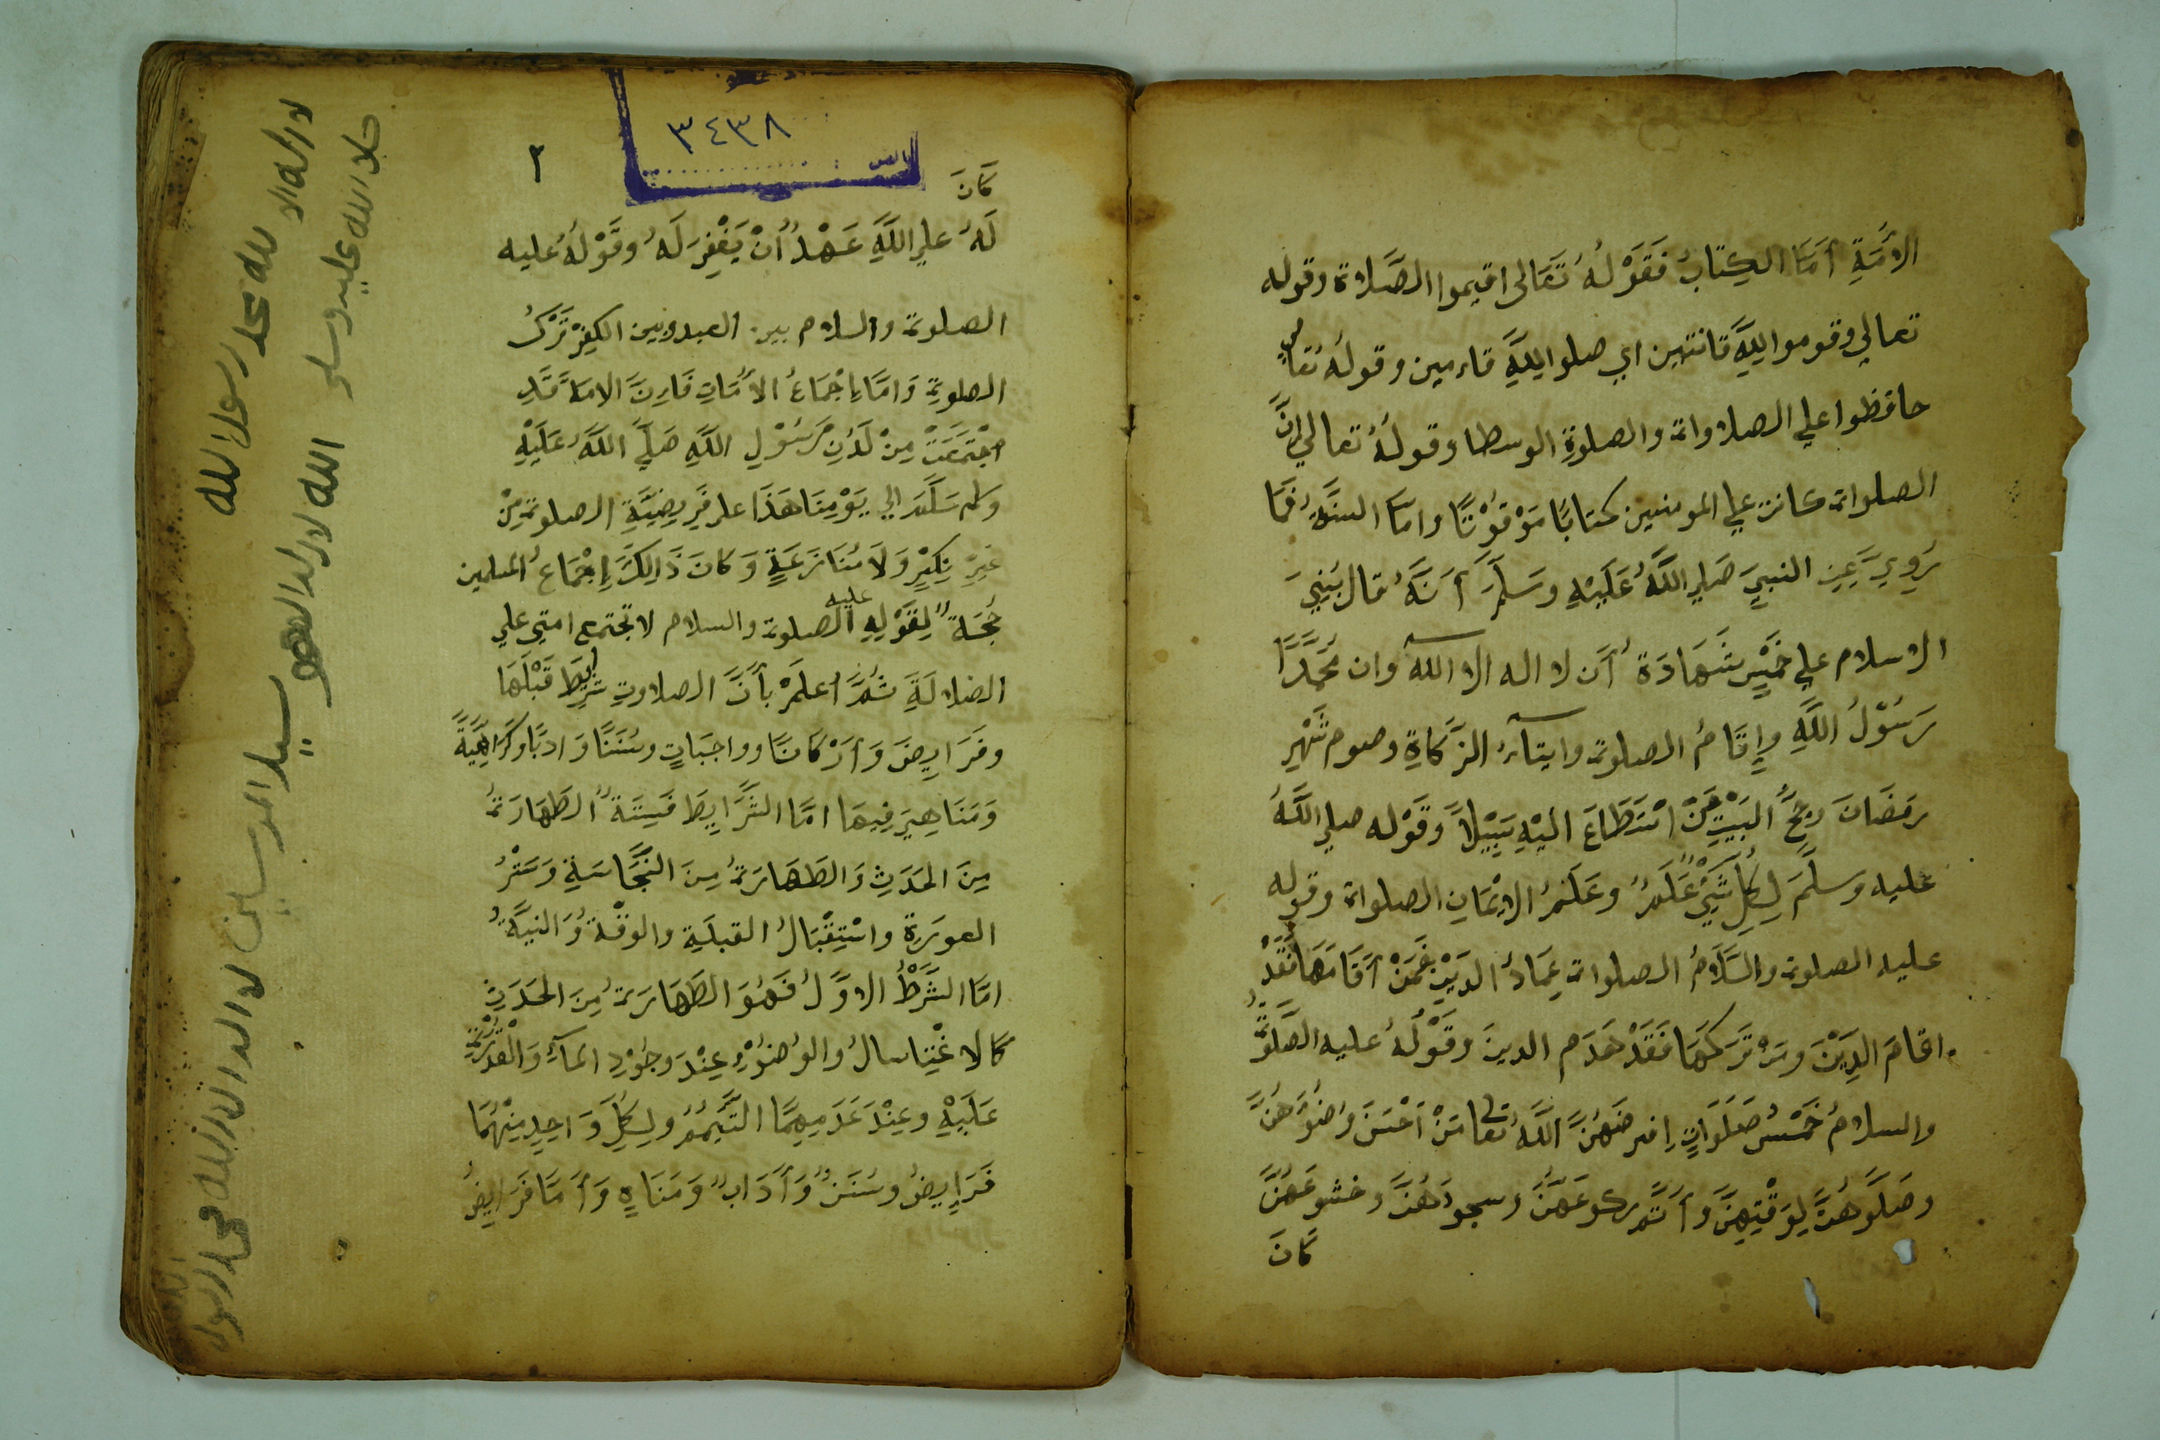 الأُمَّةِ أَمَّا الكِتَابُ فَقَوْلُهُ تَعَالى اقيموا الصَّلاة وقوله
تعالي وقوموا لِلّهِ قانتين اي صلوا لِلّهِ قاءمين وقولُهُ تعا
حافظوا علي الصلاوات والصلوةِ الوسطا وقولُهُ تعالي إنَّ
الصلوات كانت علي المومنين كتابًا مَوْقُوْتًا واما السنَّةِ فَمَا
رُوِيَ عَنِ النبيِّ صَلي اللَّهُ عَلَيْهِ وسَلَّمَ أَنَّهُ قال بُنِيَ
الاسلام علي خَمْسٍ شَهَادَةُ أَن لا اله الا الله وان مُحَمَّدًا
رَسُوْلُ اللَّهِ وإِقَامُ الصلوة وايتاءُ الزَّكَاةِ وصوم شَهْرِ
رمَضَانَ وحِجُّ البَيْتِ مَنْ اسْتَطَاعَ اليْهِ سَبِيْلاً وقَوْله صلي اللَّهُ
عليه وسلَّمَ لِكُلِّ شَيْءٍ عَلَمٌ وعَلَمُ الاِيْمَانِ الصلوات وقوله
عليه الصلوة والسَّلَامُ الصلوات عِمَادُ الدِيْنِ فَمَنْ أَقَامَهَا فَقَدْ
اقامَ الدِيْنَ ومَنْ تَرَكَهَا فَقَدْ هَدَم الدينَ وقَوْلُهُ عليه الصَّلَوةُ
والسلامُ خَمْسُ صَلَوَاتٍ افترضَهُنَّ اللَّهُ تعالى مَنْ اَحْسَنَ وُضُوْءَهُنَّ
وصَلَّوهُنَّ لِوَقْتِهِنَّ وأَتَمَّ ركوعَهُنَّ وسجودَهُنَّ وخشوعَهُنَّ
كَانَ
٣٤٣٨
٢
كَانَ
لَهُ علي اللَّهِ عَهْدٌ أَنْ يَغْفِرَ لَهُ وقَوْلُهُ عليه
الصلوة والسلام بين العبد وبين الكفر تَرْكُ
الصلوةِ وَامَّا إِجْمَاعُ الأُمَّاتِ فَاِنَّ الامَّةَ قَدِ
اجْتَمَعَتْ مِنْ لَدُنِ رَسُوْلِ اللَّهِ صَلَّي اللَّهُ عَلَيْهِ
وسَلَّمَ الي يَوْمِنَا هَذَا علي فَرِيضِيَّةِ الصلوة مِنْ
غَيْرِ نِكِيْرٍ وَلَا مُنَازَعَةٍ وَكَانَ ذَالِكَ إِجْمَاعُ المسلمين
حُجَّةً لِقَوْلِهِ عليه الصلوة والسلام لا تجتمع امتي علي
الضلالَةِ ثُمَّ اُعلَمْ بأَنَّ الصلاوتِ شرايِطَ قَبْلَهَا
وفَرَايِضَ وَأَرْكَانًا وواجبَاتٍ وسُنَنًا وَادَبًا وكَرَاهِيَّةً
وَمَنَاهِيَ فِيهَا امَّا الشَّرَايِطَ فَسِتَّةٌ الطَهَارَةُ
مِنَ الحَدَثِ وَالطَهَارَةُ مِنَ النَجَّاسَةِ وَسَتْرُ
العورَةِ واسْتِقْبَالُ القبلَةِ والوقْتُ وَالنيَّةُ
امَّا الشَّرْطُ الاوَّلُ فَهُوَ الطَهَارَةُ مِنَ الحَدَثِ
كَالاغْتِسالُ والوُضُوْءِ عِنْدَ وجُوْدِ الماءِ وَالْقُدْرَةِ
عَلَيْهِ وعِنْدَ عَدَمِهِمَّا التَّيَمُّمُ ولِكُلِّ وَاحِدٍ مِنْهُمَا
فَرَايِضُ وسُنَنٌ وَأَدَابٌ وَمَنَاهٍ وَأَمَّا فَرَايِضُ
لا اله الا لله محمد رسول الله
الله عليه وسلم
لا اله الا الله محمد رسول